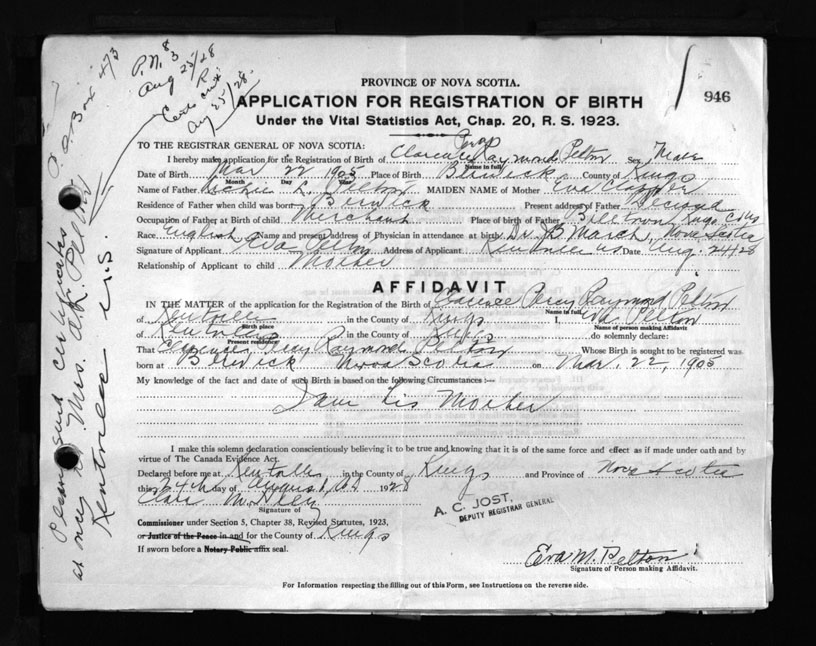 P.N. 8 3
Aug 25/28
Aug 25/28.
Please send certificates P.O. Box 413
at once to Mrs. A.L. Pelton
Kentville N.S.
946
PROVINCE OF NOVA SCOTIA.
APPLICATION FOR REGISTRATION OF BIRTH
Under the Vital Statistics Act, Chap. 20, R. S. 1923.
TO THE REGISTRAR GENERAL OF NOVA SCOTIA:
Percy
I hereby make application for the Registration of Birth of Clarence Raymond Pelton Sex Male
Name in full
Date of Birth Mar 22 1905 Place of Birth Berwick County of Kings
Month Day Year
Name of Father L. Pelton MAIDEN NAME of Mother Eva
Residence of Father when child was born Berwick Present address of Father Deceased
Occupation of Father at Birth of child Merchant Place of birth of Father Billtown, Kings Co
Race English Name and present address of Physician in attendance at birth Dr. March, Nova Scotia
Signature of Applicant Eva Pelton Address of Applicant Kentville N.S. Date Aug. 24/28
Relationship of Applicant to child Mother
AFFIDAVIT
IN THE MATTER of the application for the Registration of the Birth of Clarence Percy Raymond Pelton
Name in full
of Kentville in the County of Kings I, Eva Pelton
Birth place Name of person making Affidavit
of Kentville in the County of Kings do solemnly declare:
Present residence
That Clarence Percy Raymond Pelton Whose Birth is sought to be registered was
born at Berwick Nova Scotia on Mar. 22, 1905
My knowledge of the fact and date of such Birth is based on the following Circumstances :—
I am his Mother
I make this solemn declaration conscientiously believing it to be true and knowing that it is of the same force and effect as if made under oath and by
virtue of The Canada Evidence Act.
Declared before me at Kentville in the County of Kings and Province of Nova Scotia
this 24th day of August A.D. 1928
A. C. JOST,
DEPUTY REGISTRAR GENERAL
Signature of
Commissioner under Section 5, Chapter 38, Revised Statutes, 1923,
or Justice of the Peace in and for the County of Kings
If sworn before a Notary Public affix seal.
Eva M. Pelton
Signature of Person making Affidavit.
For Information respecting the filling out of this Form, see Instructions on the reverse side.